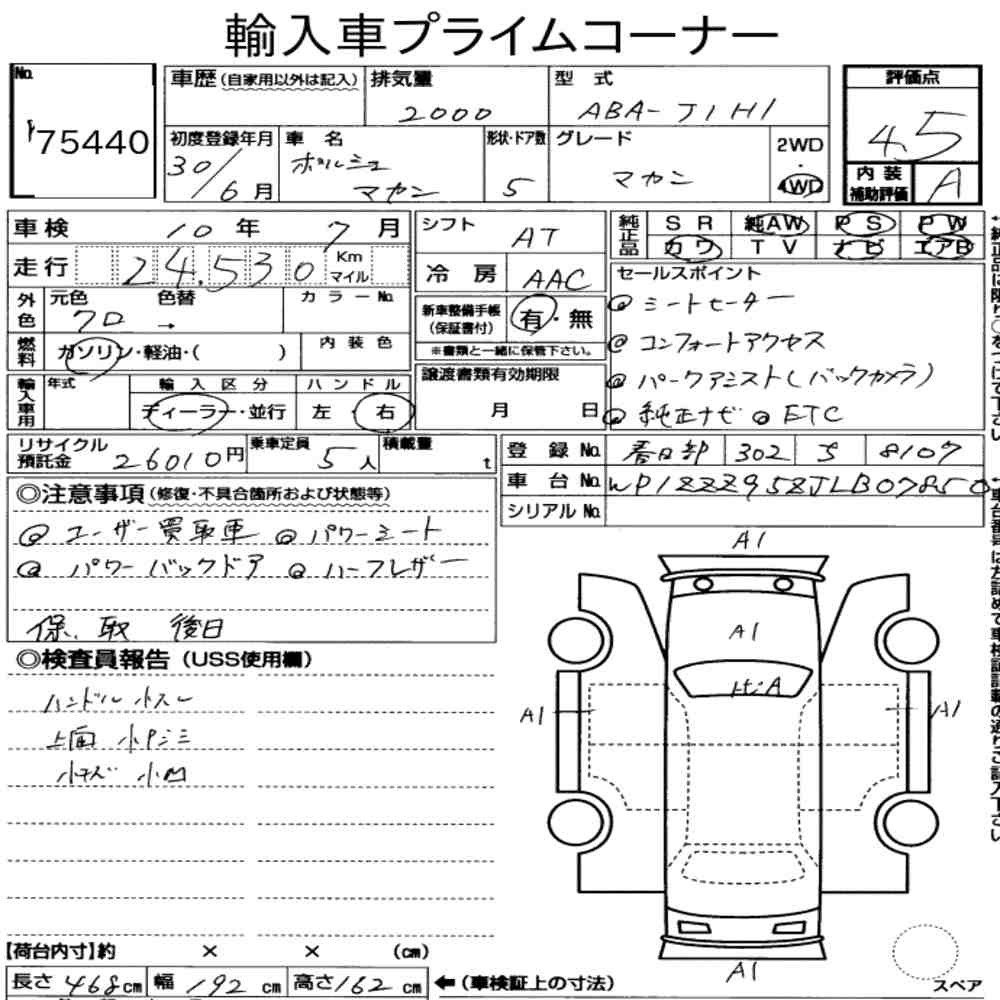 輸入車プライムコーナー
No. 75440
車歴(自家用以外は記入) 排気量 2000 型式 ABA-J1H1
評価点 4.5
内装補助評価 A
初度登録年月 30/6月 車名 ポルシェ マカン 形状・ドア数 5 グレード マカン 2WD・4WD
車検 10年 7月
走行 24,530 Km マイル
外色 元色 クロ 色替 → カラーNo.
燃料 ガソリン・軽油・( ) 内装色
輸入車用 年式 輸入区分 ディーラー・並行 ハンドル 左・右
シフト AT
冷房 AAC
新車整備手帳(保証書付) 有・無
※書類と一緒に保管下さい。
譲渡書類有効期限
月 日
純正品 SR 純AW PS PW
カワ TV ナビ エアB
セールスポイント
@ シートヒーター
@ コンフォートアクセス
@ パークアシスト(バックカメラ)
@ 純正ナビ @ ETC
←純正品に限り○をつけて下さい
リサイクル預託金 26010円 乗車定員 5人 積載量 t
登録No. 春日部 302 す 8107
車台No. WP1ZZZ95ZJLB07850
シリアルNo.
↑車台番号は左詰めで車検証記載の通りご記入下さい
◎注意事項(修復・不具合箇所および状態等)
@ ユーザー買取車 @ パワーシート
@ パワーバックドア @ ハーフレザー
保、取 後日
◎検査員報告(USS使用欄)
ハンドル 小スレ
上面 小Pジミ
小キズ 小凹
A1
A1
A1
A1
A1
【荷台内寸】約 × × (cm)
長さ 468cm 幅 192cm 高さ 162cm ←(車検証上の寸法)
スペア